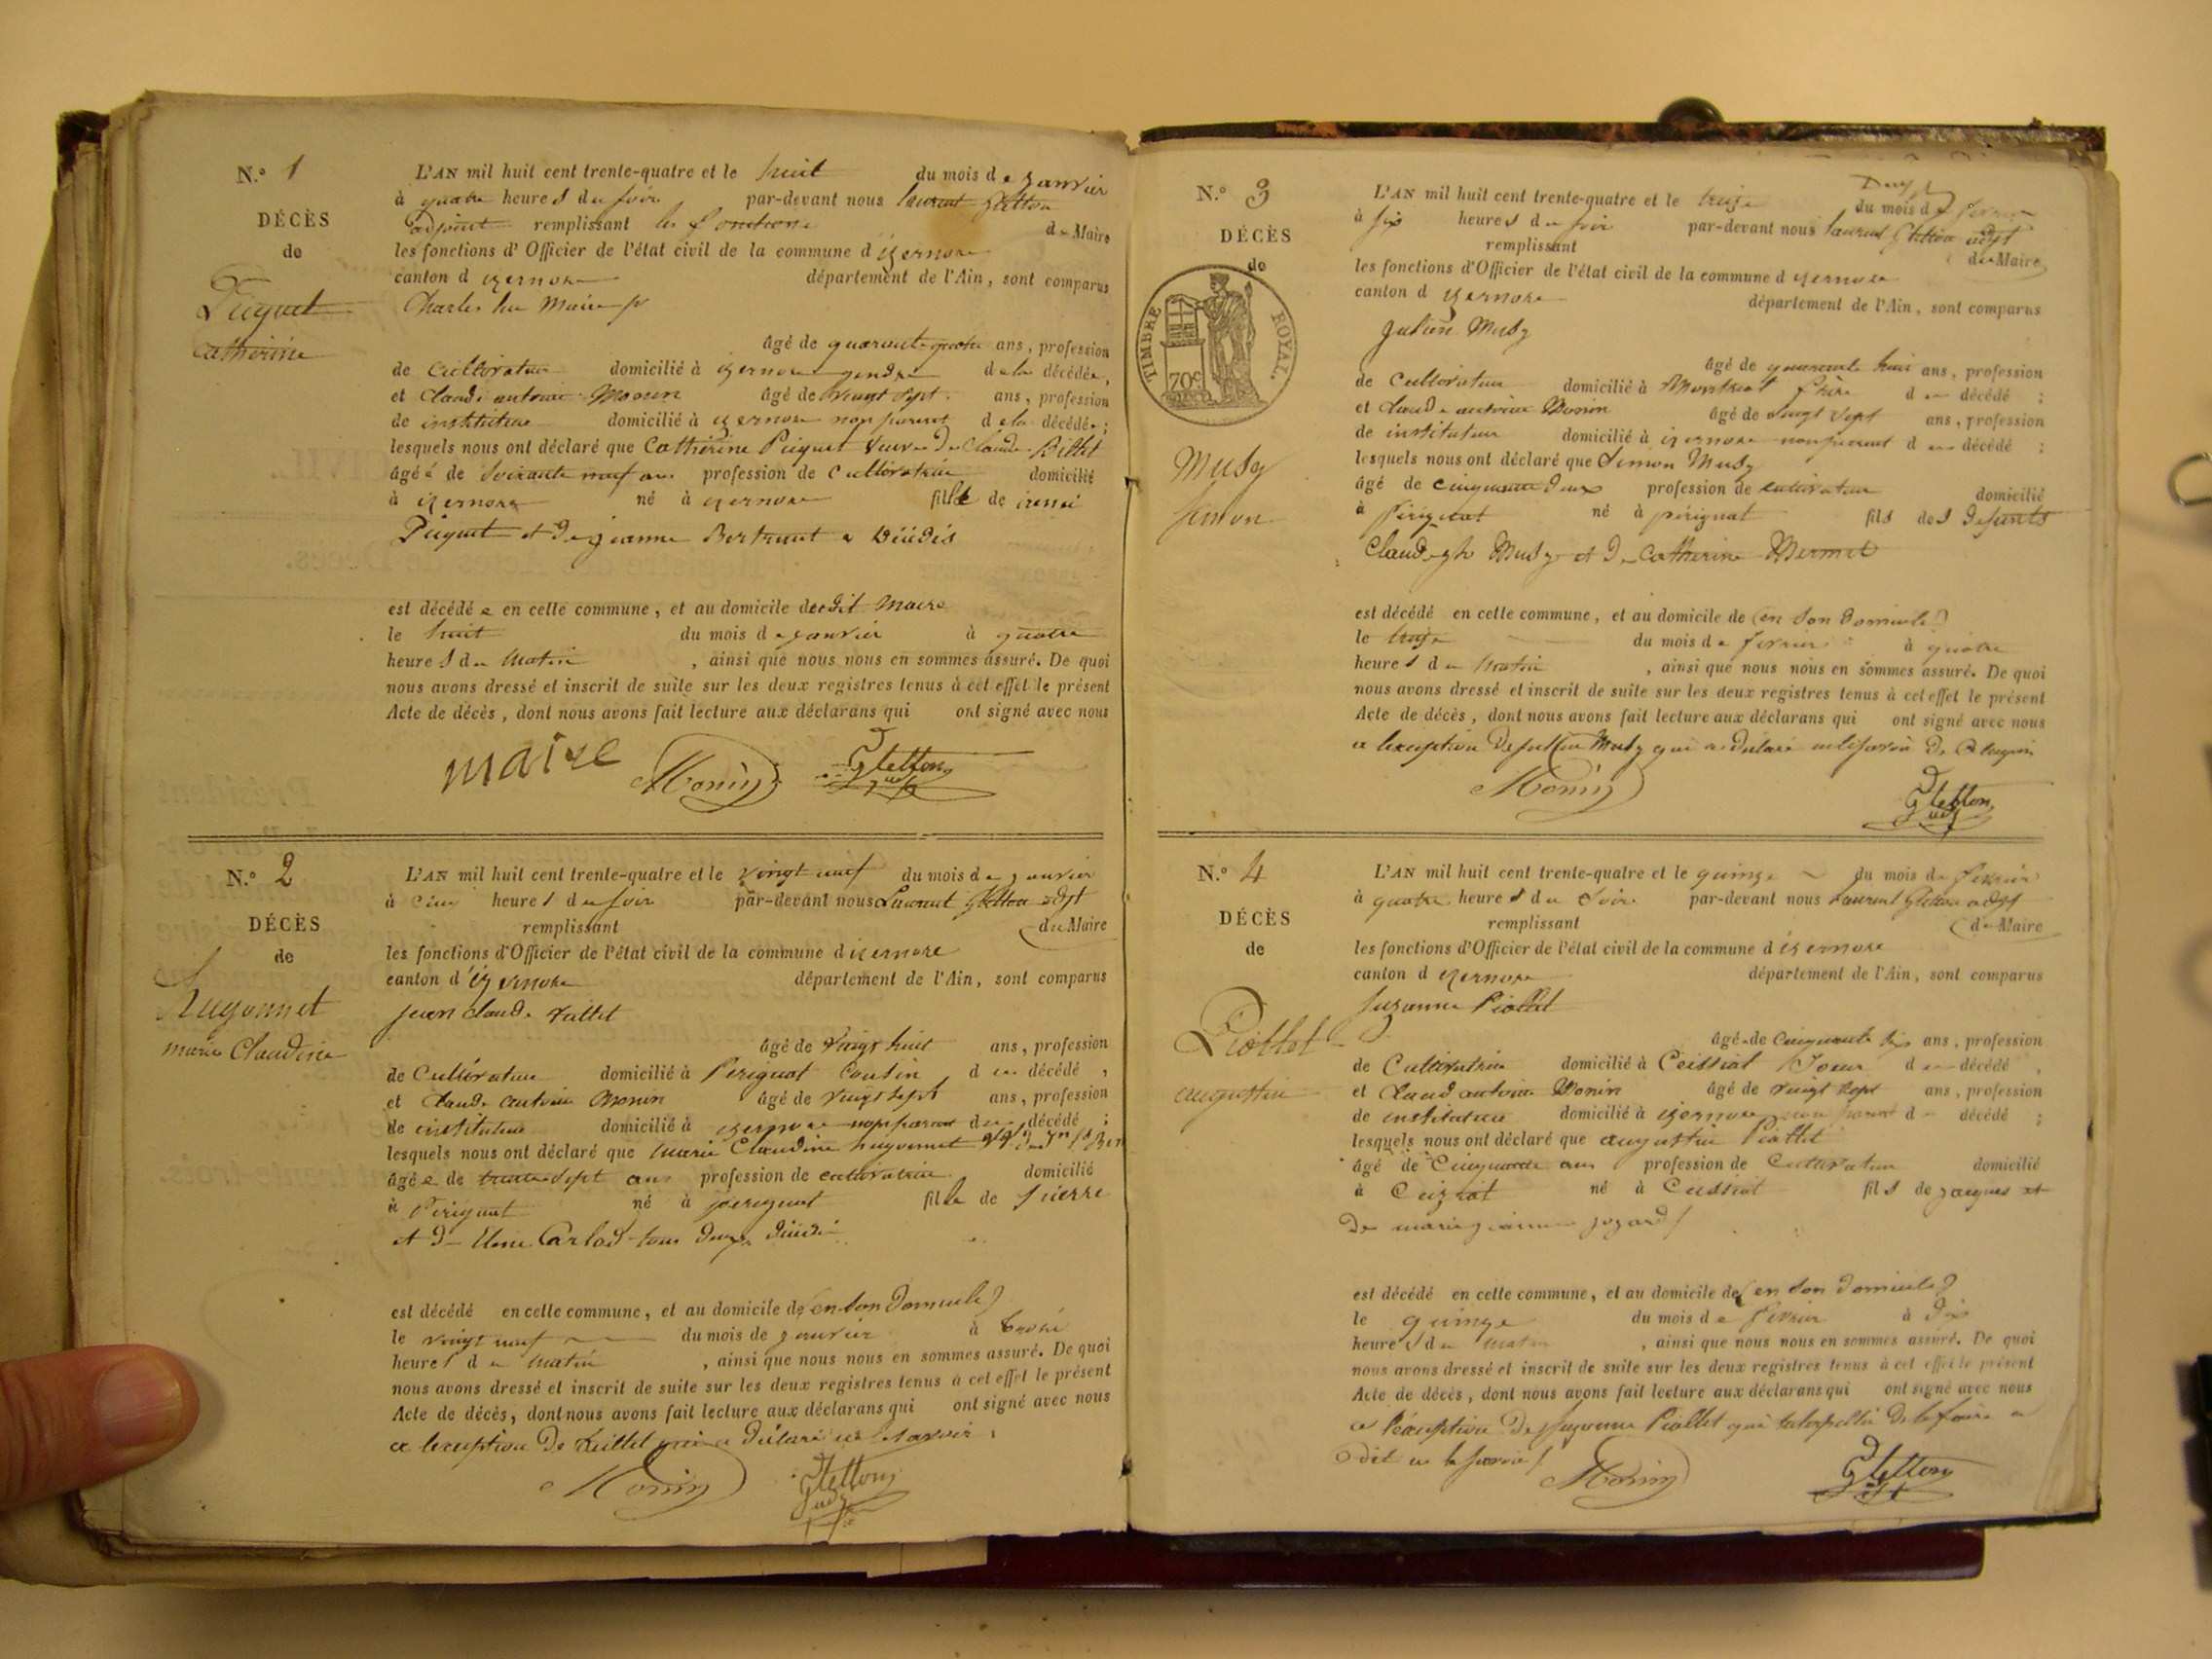 N.° 1
DÉCÈS
de
Puguet
Catherine
L'AN mil huit cent trente-quatre et le huit du mois de janvier
à quatre heures du soir par-devant nous laurent Gletton
adjoint remplissant les fonctions de Maire
les fonctions d'Officier de l'état civil de la commune d izernore
canton d izernore département de l'Ain, sont comparus
Charles Maire
âgé de quarante quatre ans, profession
de Cultivateur domicilié à izernore gendre de la décédée,
et Claude antoine Monin âgé de vingt sept ans, profession
de instituteur domicilié à izernore non parent de la décédée ;
lesquels nous ont déclaré que Catherine Puguet veuve de Claude Billet
âgée de Soixante neuf ans profession de Cultivatrice domicilié
à izernore né à izernore fille de
Puguet et de jeanne
est décédée en cette commune, et au domicile du dit Maire
le huit du mois de janvier à quatre
heures du Matin , ainsi que nous nous en sommes assuré. De quoi
nous avons dressé et inscrit de suite sur les deux registres tenus à cet effet le présent
Acte de décès, dont nous avons fait lecture aux déclarans qui ont signé avec nous
maire Monin Gletton
N.° 2
DÉCÈS
de
hugonnet
marie Claudine
L'AN mil huit cent trente-quatre et le vingt neuf du mois de janvier
à cinq heures du soir par-devant nous Laurent Gletton adjt
remplissant du Maire
les fonctions d'Officier de l'état civil de la commune d izernore
canton d'izernore département de l'Ain, sont comparus
jean claude
âgé de vingt huit ans, profession
de Cultivateur domicilié à Perignat Cousin d décédé ,
et Claude antoine Monin âgé de vingt sept ans, profession
de instituteur domicilié à izernore non parent d décédé ;
lesquels nous ont déclaré que Marie Claudine hugonnet
âgée de trente sept ans profession de cultivatrice domicilié
à Perignat né à perignat fille de pierre
et de tous deux
est décédé en cette commune, et au domicile de (en son domicile)
le vingt neuf du mois de janvier à
heures du Matin , ainsi que nous nous en sommes assuré. De quoi
nous avons dressé et inscrit de suite sur les deux registres tenus à cet effet le présent
Acte de décès, dont nous avons fait lecture aux déclarans qui ont signé avec nous
a lexception de qui a déclaré ne le savoir
Monin Gletton
N.° 3
DÉCÈS
de
TIMBRE ROYAL.
70c
Musy
Simon
L'AN mil huit cent trente-quatre et le treize du mois de fevrier
à six heures du soir par-devant nous laurent Gletton adjt
remplissant du Maire
les fonctions d'Officier de l'état civil de la commune d izernore
canton d izernore département de l'Ain, sont comparus
Julien Musy
âgé de quarante huit ans, profession
de Cultivateur domicilié à Montreal frère d décédé ;
et Claude antoine Monin âgé de vingt sept ans, profession
de instituteur domicilié à izernore non parent d décédé ;
lesquels nous ont déclaré que Simon Musy
âgé de cinquante deux profession de cultivateur domicilié
à perignat né à pérignat fils des defunts
Claude Musy et de Catherine Mermet
est décédé en cette commune, et au domicile de (en son domicile)
le treize du mois de fevrier à quatre
heures du Matin , ainsi que nous nous en sommes assuré. De quoi
nous avons dressé et inscrit de suite sur les deux registres tenus à cet effet le présent
Acte de décès, dont nous avons fait lecture aux déclarans qui ont signé avec nous
a lexception de Julien Musy qui a déclaré
Monin Gletton
N.° 4
DÉCÈS
de
Piollet
augustin
L'AN mil huit cent trente-quatre et le quinze du mois de fevrier
à quatre heures du Soir par-devant nous Laurent Gletton adjt
remplissant du Maire
les fonctions d'Officier de l'état civil de la commune d izernore
canton d izernore département de l'Ain, sont comparus
Suzanne Piollet
âgé de cinquante six ans, profession
de Cultivatrice domicilié à Ceissiat Soeur d décédé ,
et Claude antoine Monin âgé de vingt sept ans, profession
de instituteur domicilié à izernore non parent d décédé ;
lesquels nous ont déclaré que augustin Piollet
âgé de Cinquante ans profession de Cultivateur domicilié
à Ceissiat né à Ceissiat fils de jacques et
de marie jeanne
est décédé en cette commune, et au domicile de (en son domicile)
le quinze du mois de fevrier à dix
heures du matin , ainsi que nous nous en sommes assuré. De quoi
nous avons dressé et inscrit de suite sur les deux registres tenus à cet effet le présent
Acte de décès, dont nous avons fait lecture aux déclarans qui ont signé avec nous
a l'exception de Suzanne Piollet qui interpellée de le faire a
dit ne le savoir
Monin Gletton